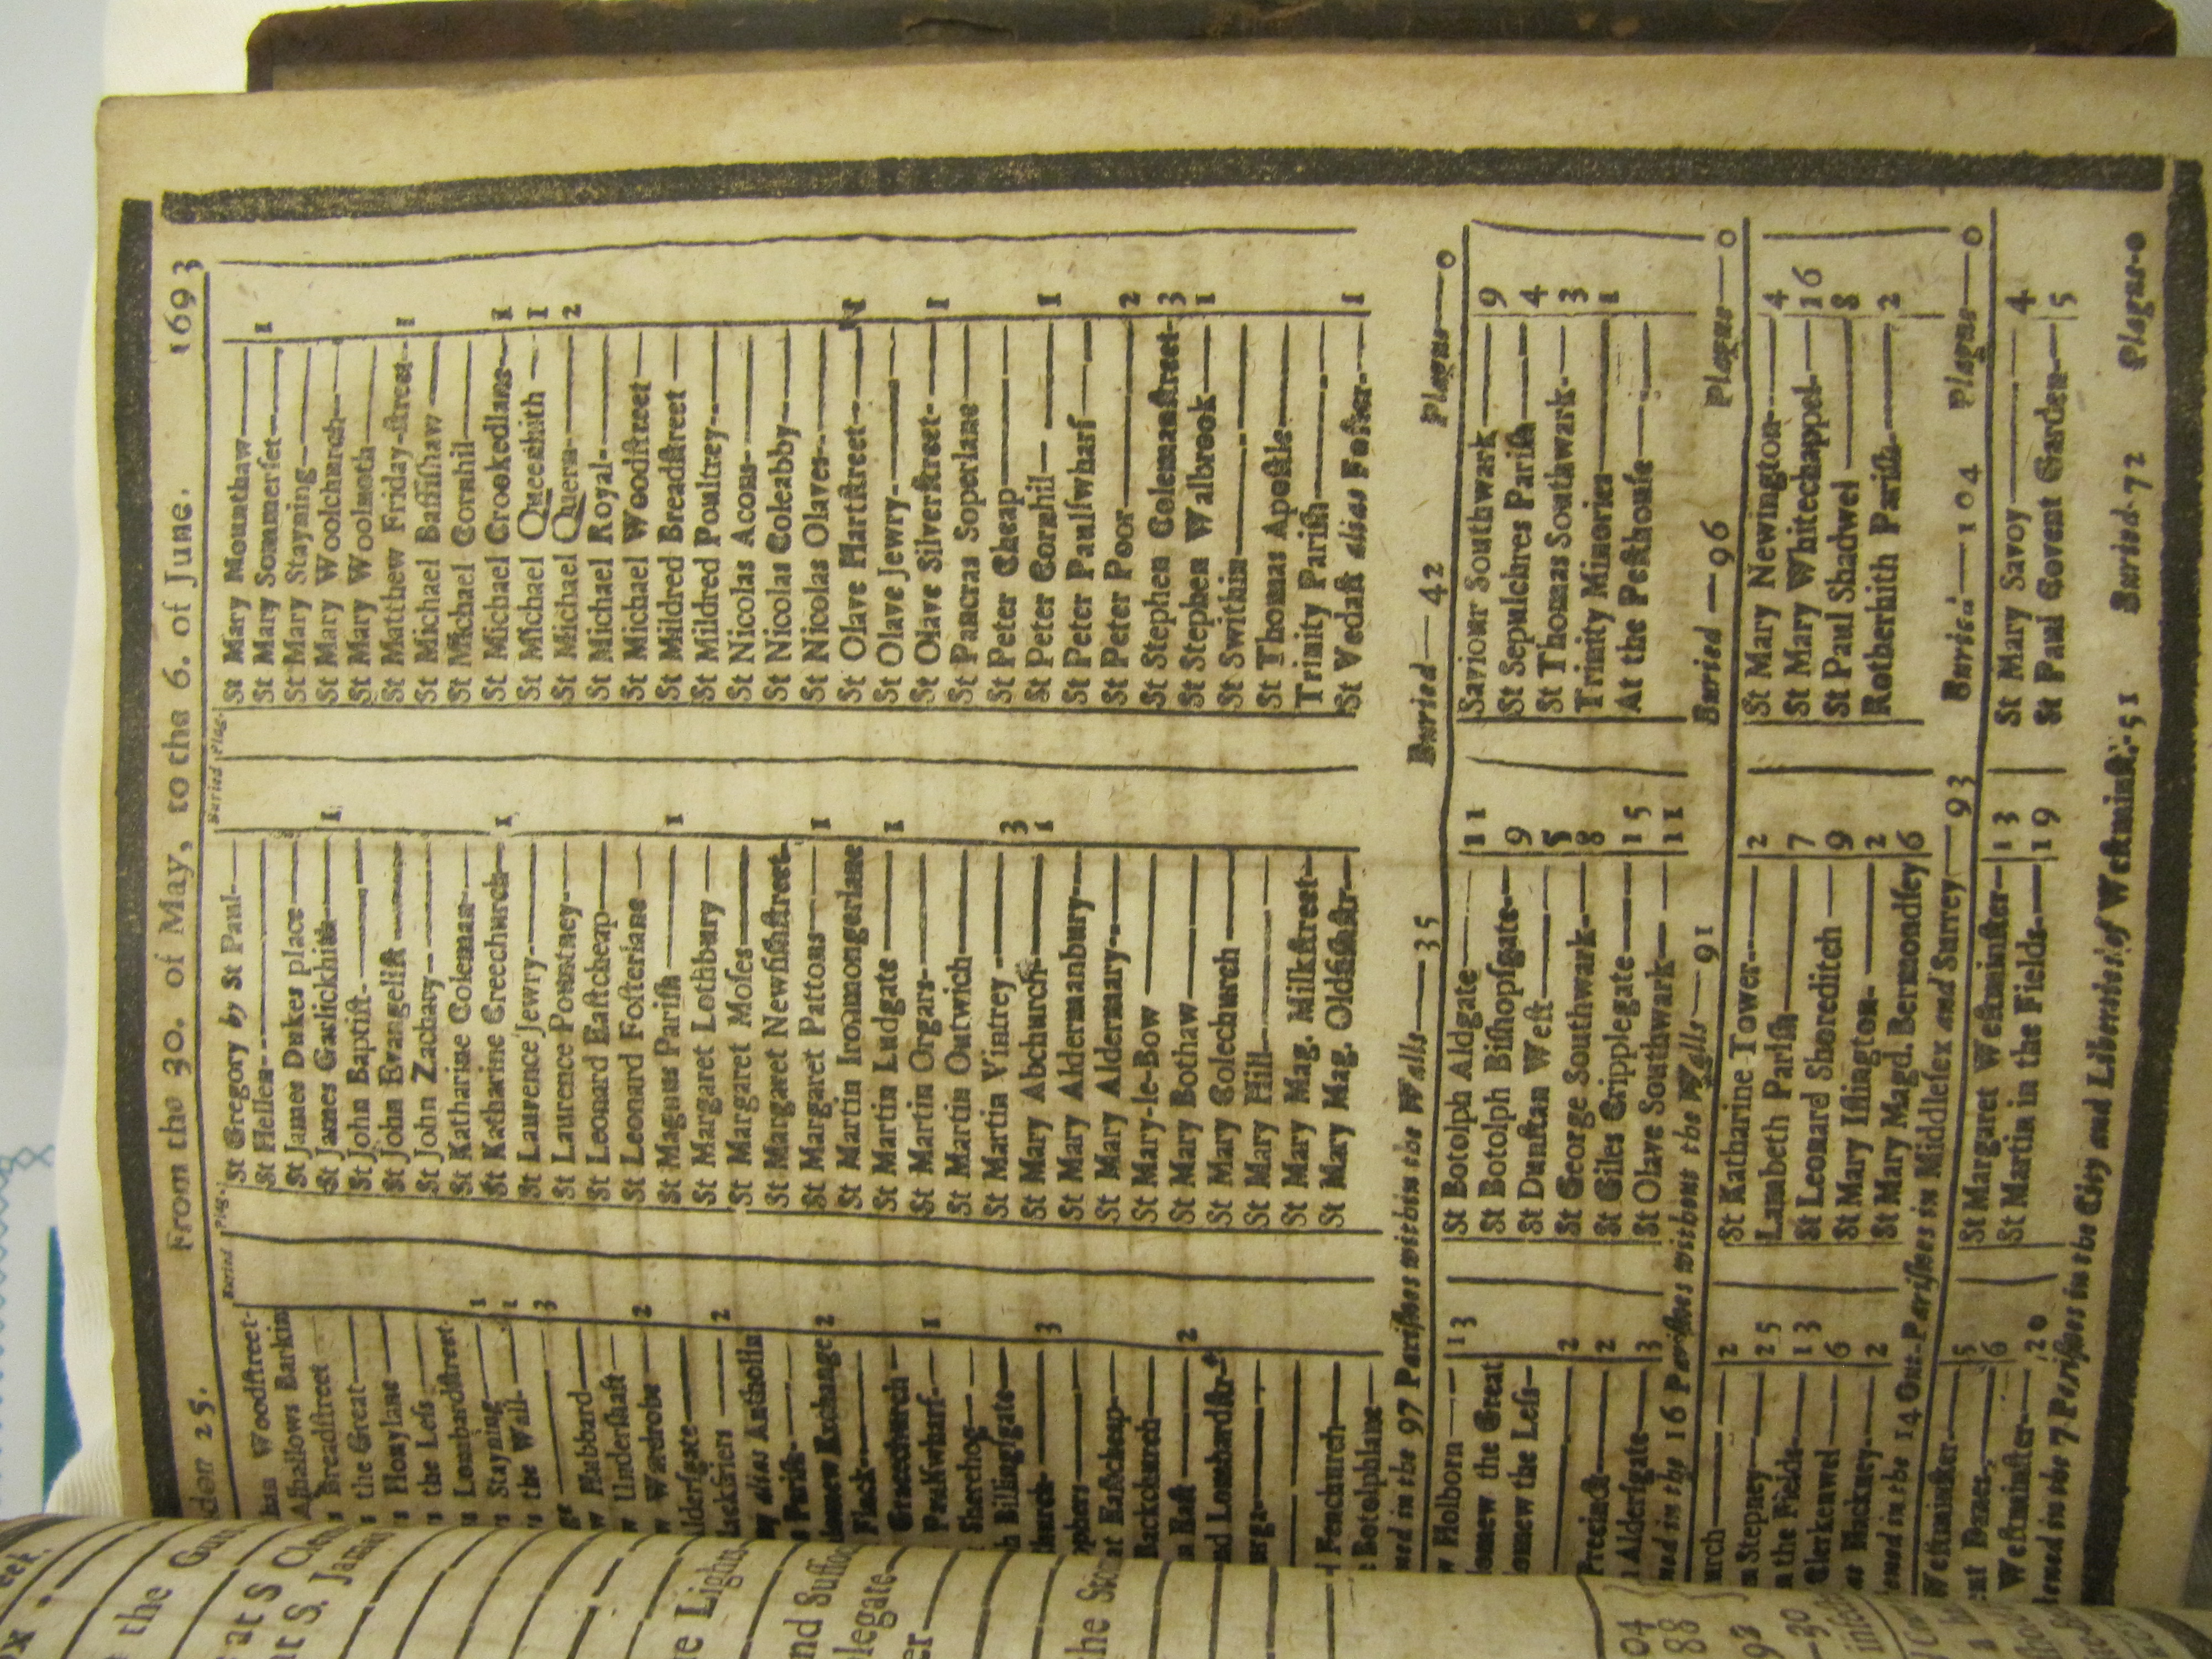 don 25. From the 30. of May, to the 6. of June. 1693
Buried Plag.
Buried Plag.
Woodſtreet-
Alhallows Barkin
Breadſtreet
the Great
Honylane
the Leſs
Lombardſtreet 1
Stayning 1
the Wall 3
Hubbard
Underſhaft
Wardrobe 2
lderſgate
lackfriers 2
alias Antholin
Pariſh
Exchange 2
Fleet
Gracechurch
Paulſwharf 1
Sherehog
Billingſgate
church 3
Eaſtcheap
Backchurch
Eaſt 2
Lombardſtr
Fenchurch
Botolphlane
St Gregory by St Paul
St Hellen
St James Dukes place
St James Garlickhith 1
St John Baptiſt
St John Evangeliſt
St John Zachary
St Katharine Coleman
St Katharine Creechurch 1
St Laurence Jewry
St Laurence Pountney
St Leonard Eaſtcheap
St Leonard Foſterlane
St Magnus Pariſh 1
St Margaret Lothbury
St Margaret Moſes
St Margaret Newfiſhſtreet
St Margaret Pattons 1
St Martin Ironmongerlane
St Martin Ludgate 1
St Martin Orgars
St Martin Outwich
St Martin Vintrey 3
St Mary Abchurch 1
St Mary Aldermanbury
St Mary Aldermary
St Mary-le-Bow
St Mary Bothaw
St Mary Colechurch
St Mary Hill
St Mary Mag. Milkſtreet
St Mary Mag. Oldfiſhſtr
St Mary Mounthaw
St Mary Sommerſet 1
St Mary Stayning
St Mary Woolchurch
St Mary Woolnoth
St Matthew Friday-ſtreet 1
St Michael Baſſiſhaw
St Michael Cornhil
St Michael Crookedlane 1
St Michael Queenhith 1
St Michael Quern 2
St Michael Royal
St Michael Woodſtreet
St Mildred Breadſtreet
St Mildred Poultrey
St Nicolas Acons
St Nicolas Coleabby
St Nicolas Olaves
St Olave Hartſtreet 1
St Olave Jewry
St Olave Silverſtreet 1
St Pancras Soperlane
St Peter Cheap
St Peter Cornhil 1
St Peter Paulſwharf
St Peter Poor 2
St Stephen Colemanſtreet 3
St Stephen Walbrook 1
St Swithin
St Thomas Apoſtle
Trinity Pariſh
St Vedaſt alias Foſter 1
ned in the 97 Pariſhes within the Walls 35 Buried 42 Plague 0
Holborn 13
lomew the Great
lomew the Leſs
2
Precinct 2
Alderſgate 3
St Botolph Aldgate 11
St Botolph Biſhopſgate 9
St Dunſtan Weſt 5
St George Southwark 8
St Giles Cripplegate 15
St Olave Southwark 11
Saviour Southwark 9
St Sepulchres Pariſh 4
St Thomas Southwark 3
Trinity Minories 1
At the Peſthouſe
ned in the 16 Pariſhes without the Walls 91 Buried 96 Plague 0
urch 2
Stepney 25
the Fields 13
Clerkenwel 6
Hackney 2
St Katharine Tower 2
Lambeth Pariſh 7
St Leonard Shoreditch 9
St Mary Iſlington 2
St Mary Magd. Bermondſey 6
St Mary Newington 4
St Mary Whitechappel 16
St Paul Shadwel 8
Rotherhith Pariſh 2
tened in the 14 Out-Pariſhes in Middleſex and Surrey 93 Buried 104 Plague 0
Weſtminſter 20
St Margaret Weſtminſter 13
St Martin in the Fields 19
St Mary Savoy 4
St Paul Covent Garden 5
tened in the 7 Pariſhes in the City and Liberties of Weſtminſt. 51 Buried 72 Plague 0